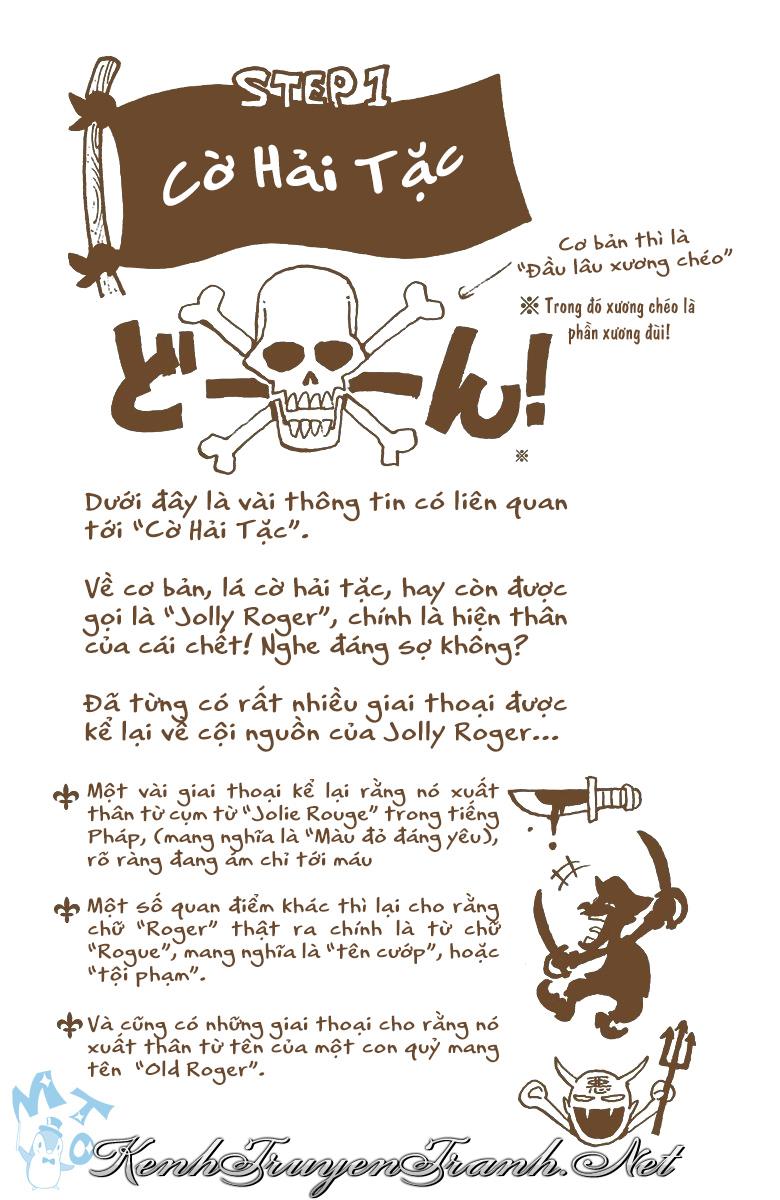 STEP 1
Cờ Hải Tặc
Cơ bản thì là
“Đầu lâu xương chéo”
※ Trong đó xương chéo là
phần xương đùi!
どーん!
※
Dưới đây là vài thông tin có liên quan
tới “Cờ Hải Tặc”.
Về cơ bản, lá cờ hải tặc, hay còn được
gọi là “Jolly Roger”, chính là hiện thân
của cái chết! Nghe đáng sợ không?
Đã từng có rất nhiều giai thoại được
kể lại về cội nguồn của Jolly Roger...
Một vài giai thoại kể lại rằng nó xuất
thân từ cụm từ “Jolie Rouge” trong tiếng
Pháp, (mang nghĩa là “Màu đỏ đáng yêu),
rõ ràng đang ám chỉ tới máu
Một số quan điểm khác thì lại cho rằng
chữ “Roger” thật ra chính là từ chữ
“Rogue”, mang nghĩa là “tên cướp”, hoặc
“tội phạm”.
Và cũng có những giai thoại cho rằng nó
xuất thân từ tên của một con quỷ mang
tên “Old Roger”.
悪
MTO
KenhTruyenTranh.Net